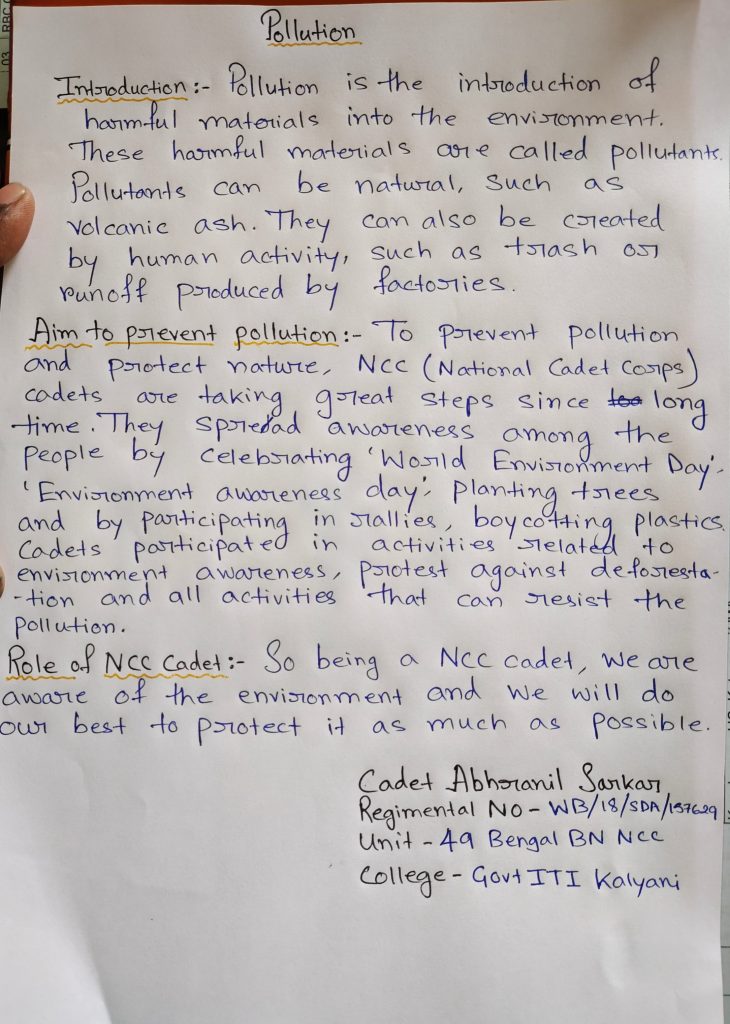 Pollution
Introduction :- Pollution is the introduction of
harmful materials into the environment.
These harmful materials are called pollutants.
Pollutants can be natural, such as
volcanic ash. They can also be created
by human activity, such as trash or
runoff produced by factories.
Aim to prevent pollution :- To prevent pollution
and protect nature, NCC (National Cadet Corps)
cadets are taking great steps since long
time. They spread awareness among the
people by celebrating 'World Environment Day',
'Environment awareness day', planting trees
and by participating in rallies, boycotting plastics.
Cadets participated in activities related to
environment awareness, protest against deforesta-
-tion and all activities that can resist the
pollution.
Role of NCC Cadet :- So being a NCC cadet, we are
aware of the environment and we will do
our best to protect it as much as possible.
Cadet Abhranil Sarkar
Regimental No - WB/18/SDA/157629
Unit - 49 Bengal BN NCC
College - Govt ITI Kalyani
RBC
03